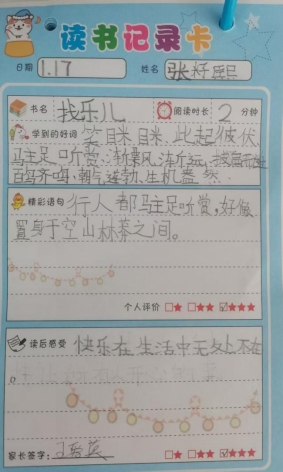 读书记录卡
日期 1.17 姓名 张好熙
书名 找乐儿 阅读时长 2 分钟
学到的好词 笑眯眯 此起彼伏
驻足聆赏
百鸟齐鸣 朝气蓬勃 生机盎然
精彩语句 行人都驻足听赏,好像
置身于空山林幕之间。
个人评价 ★ ★★ ★★★
读后感受 快乐在生活中无处不在
。
家长签字: ★ ★★ ★★★